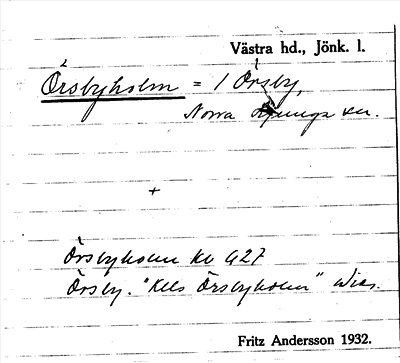 Västra hd., Jönk. l.
Örsbyholm = 1 Örsby,
Norra Ljunga sn.
+
Örsbyholm Kv G27
Örsby. "Kels Örsbyholm" Wies.
Fritz Andersson 1932.